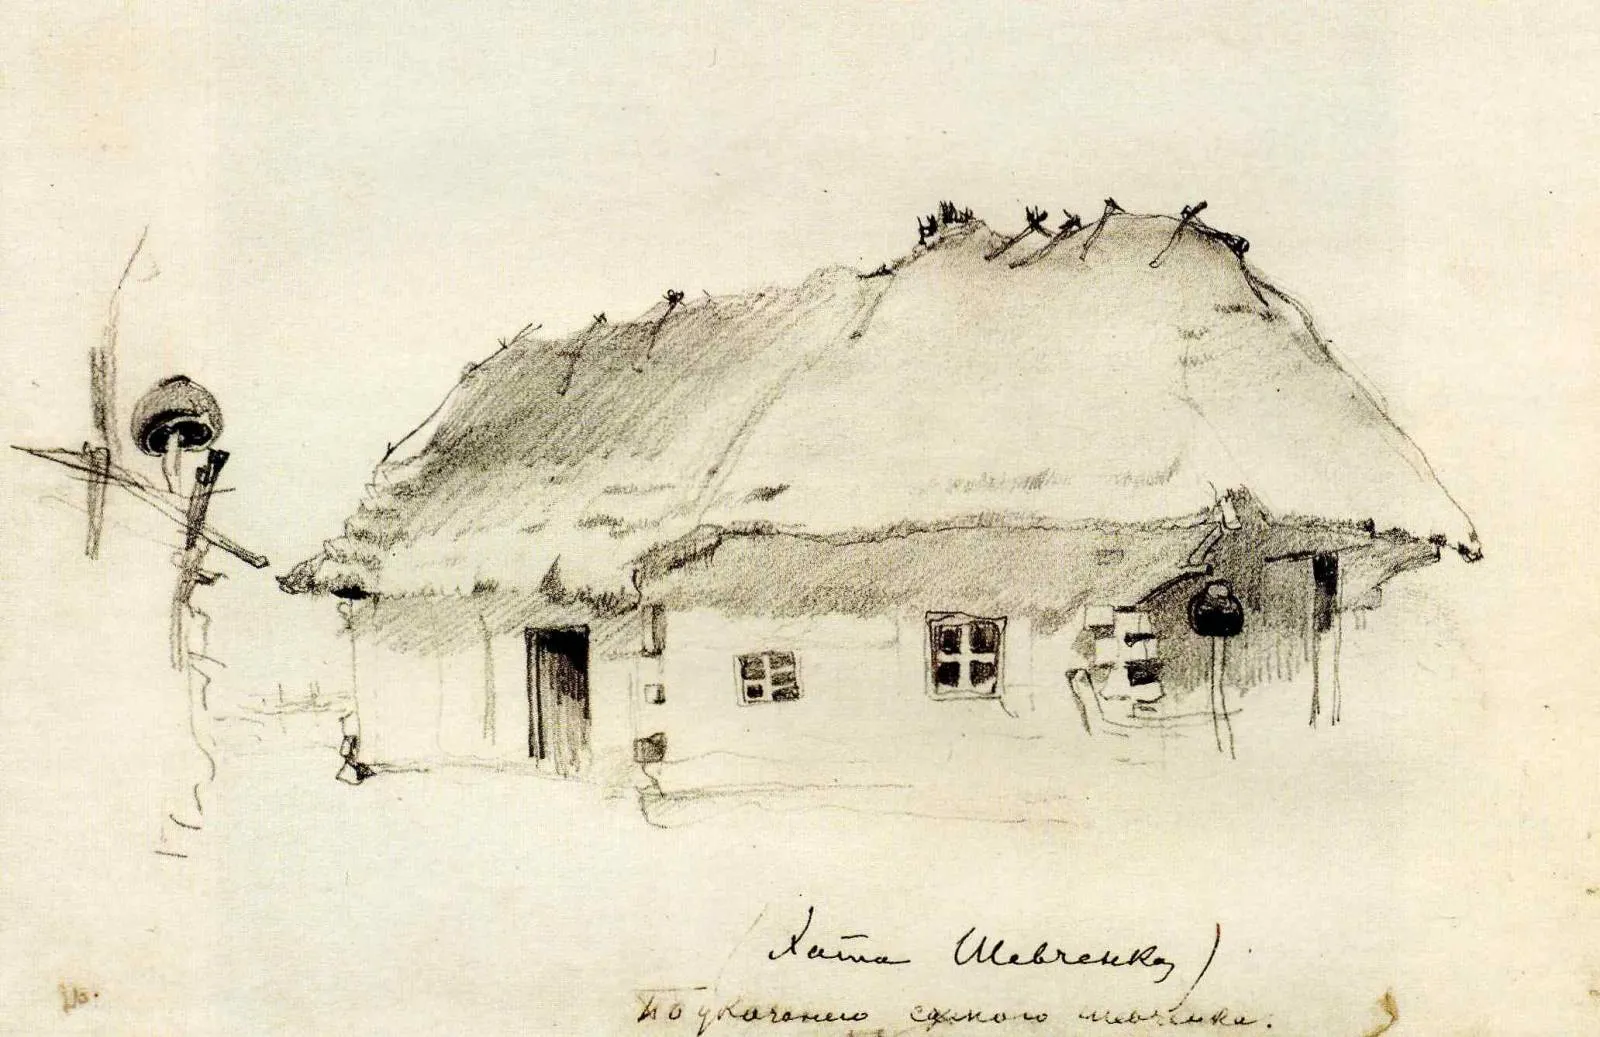 (Хата Шевченка)
По указанию самого шевченка.